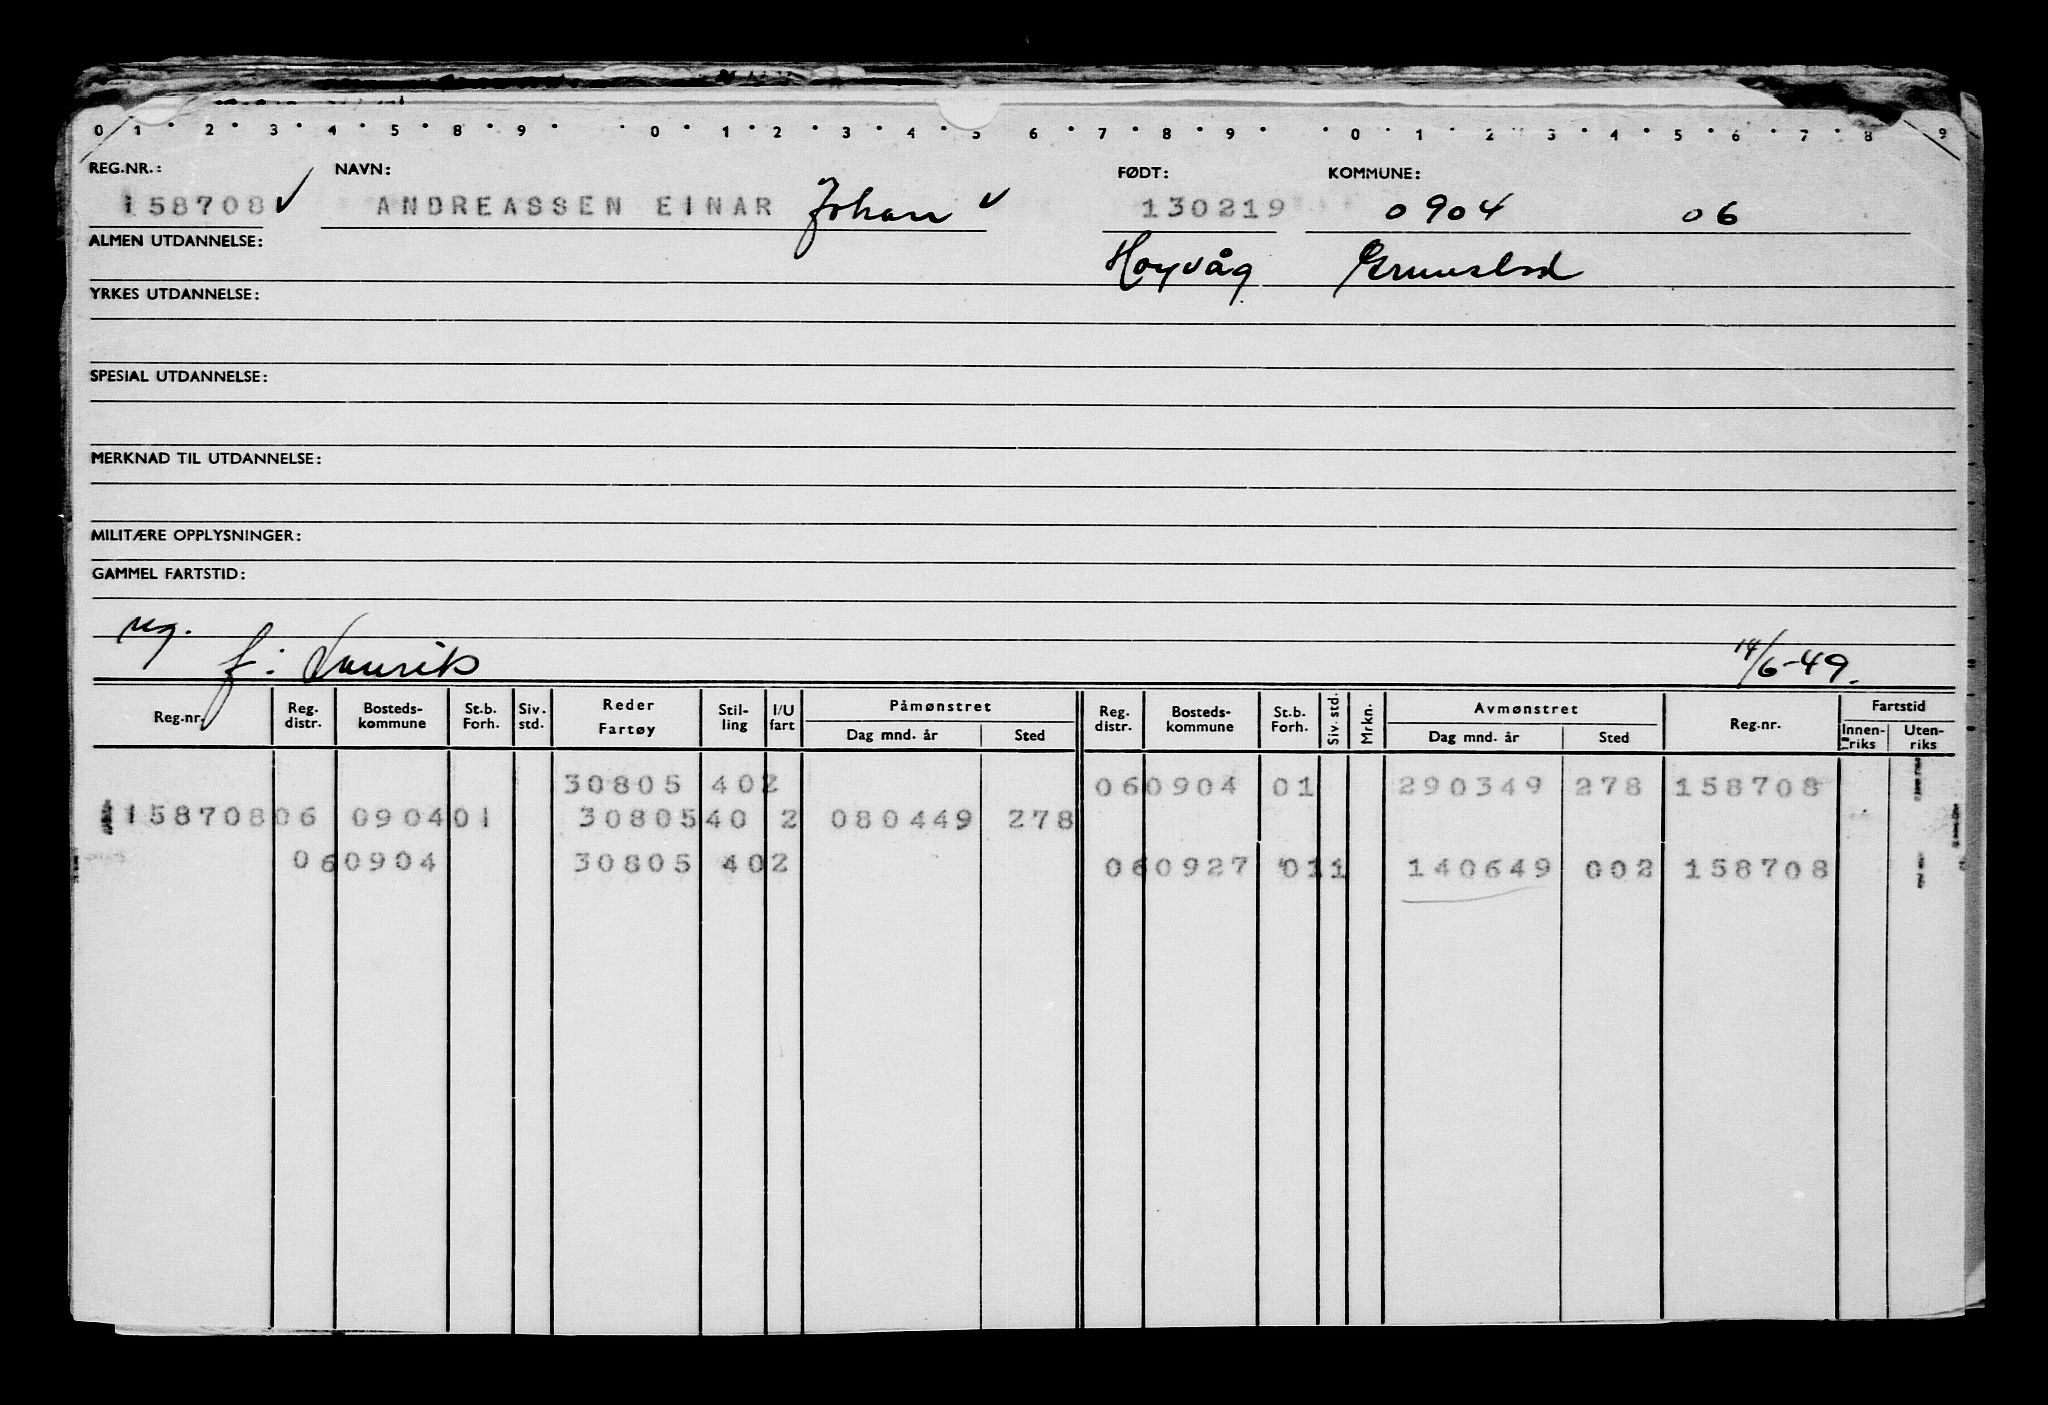 0 1 2 3 4 5 8 9 0 1 2 3 4 5 6 7 8 9 0 1 2 3 4 5 6 7 8 9
REG.NR.: NAVN: FØDT: KOMMUNE:
158708 ✓ ANDREASSEN EINAR Johan ✓ 130219 0904 06
ALMEN UTDANNELSE: Høyvåg Grimstad
YRKES UTDANNELSE:
SPESIAL UTDANNELSE:
MERKNAD TIL UTDANNELSE:
MILITÆRE OPPLYSNINGER:
GAMMEL FARTSTID:
ug.
f: 14/6-49.
Reg.nr. Reg. distr. Bosteds-kommune St.b. Forh. Siv. std. Reder Fartøy Stil-ling I/U fart Påmønstret Dag mnd. år Sted Reg. distr. Bosteds-kommune St.b. Forh. Siv. std. Mrkn. Avmønstret Dag mnd. år Sted Reg.nr. Fartstid Innen-riks Uten-riks
30805 402 060904 01 290349 278 158708
15870806 090401 3080540 2 080449 278
060904 30805 402 060927 011 140649 002 158708